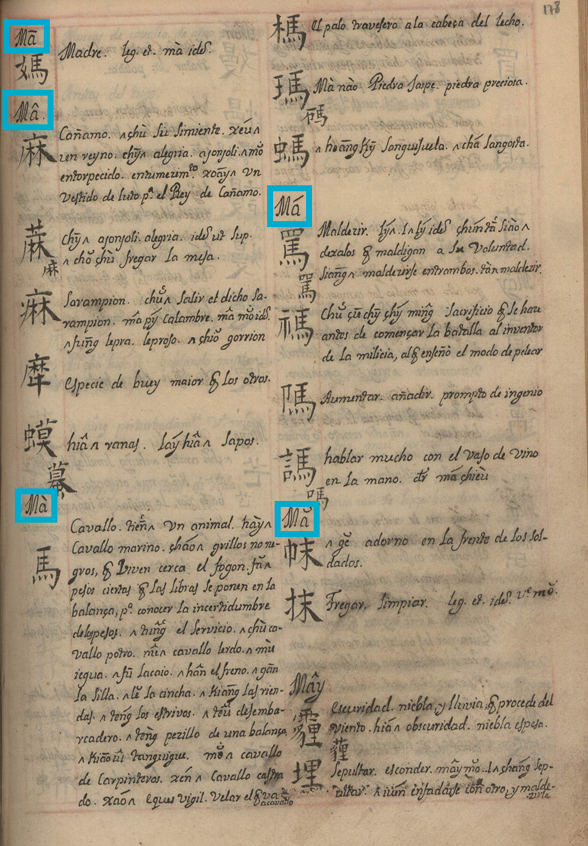 178
Mā
媽 Madre. leg. et. mà idē.
Mâ.
麻 Cañamo. ʌ chù su simiente. xéu ʌ
un reyno. chȳ ʌ alegria. ajonjoli. ʌ mǒ
entorpecido. entumezim.to xoāy ʌ un
vestido de luto p.a el Rey de Cañamo.
蔴 chȳ ʌ ajonjoli. alegria. idē ut sup.
麻 ʌ chǒ chù fregar la mesa.
痳 Sarampion. chǔ ʌ salir el dicho sa-
rampion. mâ pý Calambre. mâ mǒ idē.
ʌ fung lepra. leproso. ʌ chiǒ gorrion
犘 especie de buey maior q los otros.
蟆 hiâ ʌ ranas. láy hiâ ʌ sapos.
蟇
Mà
馬 Cavallo. tiēn ʌ un animal. hày ʌ
Cavallo marino. cháo ʌ grillos no ne-
gros, q viven cerca el fogon. fǎ ʌ
pesos ciertos q las libras se ponen en la
balança, p.a conocer la incertidumbre
de los pesos. ʌ tùng el servicio. ʌ chū ca-
vallo potro. nû ʌ cavallo lerdo. ʌ mù
iequa. ʌ fū lacaio. ʌ hân el freno. ʌ gān
la silla. ʌ lě la cincha. ʌ kiāng las rien-
das. ʌ tēng los estrivos. ʌ têu desemba-
rcadero. ʌ tèng pezillo de una balança
ʌ kiāo iû tanguigue. mǒ ʌ cavallo
de Carpinteros. xén ʌ Cavallo castra
do. xāo ʌ equus vigil. Velar el
榪 El palo travesero a la cabeça del lecho.
瑪 Mà nào Piedra Jaspe. piedra preciosa.
碼
螞 ʌ hoâng ký Sanguisuela. ʌ chá langosta.
Má
罵 Maldezir. lý ʌ. l ʌ lý idē
dexalos q maldigan a su voluntad.
駡 siāng ʌ maldezirse entrambos. tà ʌ maldezir.
禡 Sacrificio q se haze
antes de començar la batalla al inventor
de la milicia, al q enseñó el modo de pelear
隝 Aumentar. añadir. prompto de ingenio
䣕 hablar mucho con el vaso de vino
en la mano. dr má chièu
嗎
Mǎ
帓 ʌ gě adorno en la frente de los sol-
dados.
抹 Fregar, limpiar. leg. et. idē. V.e mǒ.
Mây
霾 Escuridad. niebla, y lluvia, q procede del
viento. hiâ ʌ obscuridad. niebla espesa.
薶
埋 Sepultar. esconder. mây mǒ. l ʌ cháng sep-
ultar. enfadarse con otro, y malde-
zirle